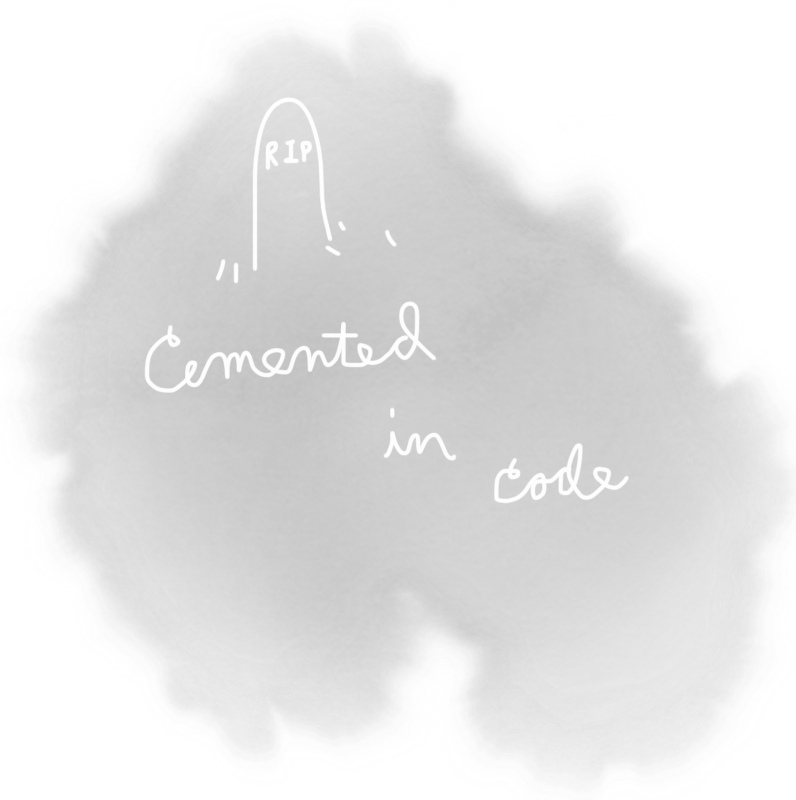 RIP
Cemented
in
code